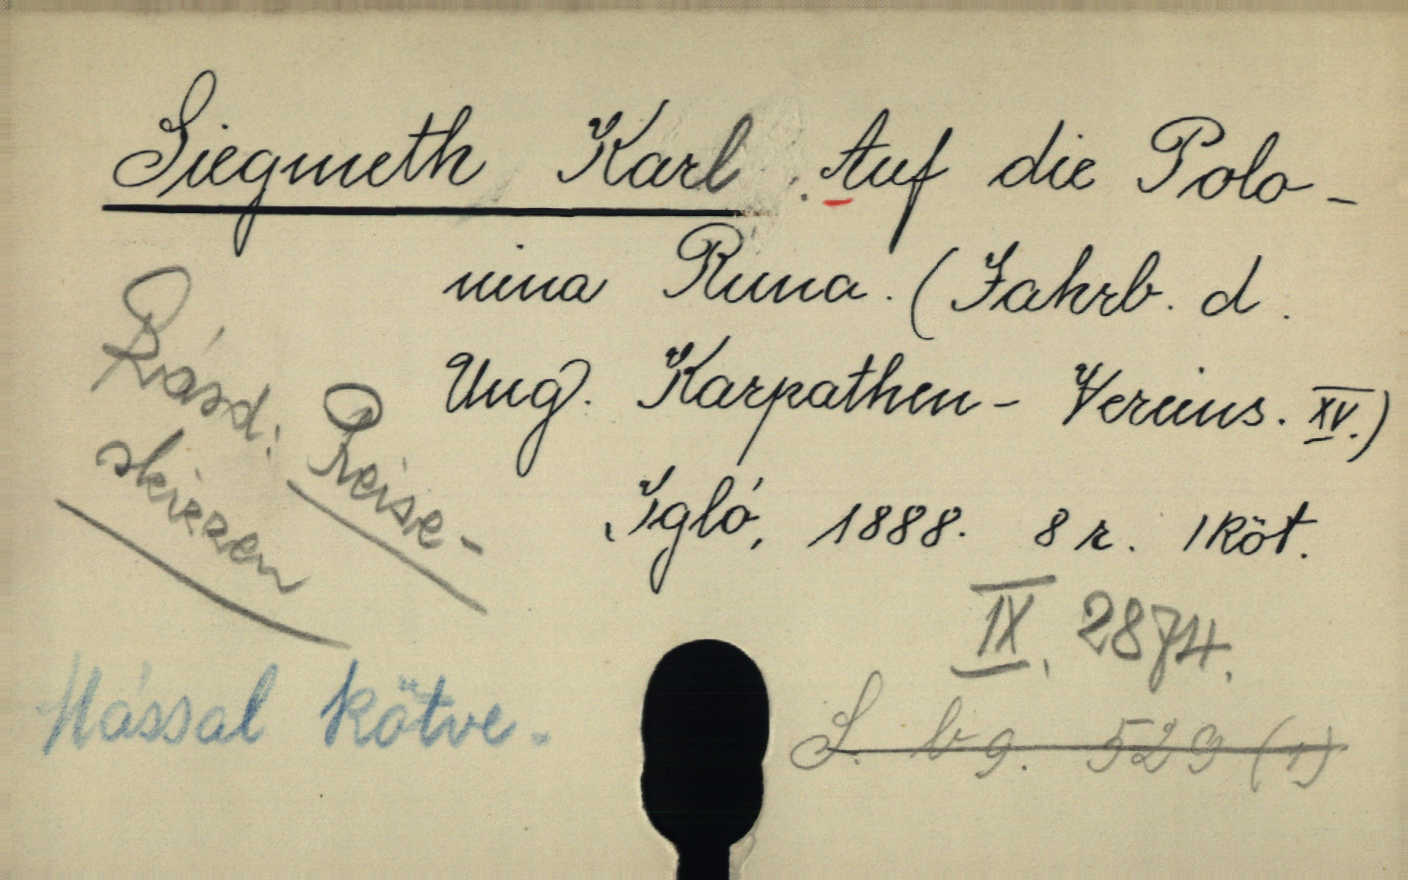 Siegmeth Karl. Auf die Polo-
nina Runa. (Jahrb. d.
Ung. Karpathen-Vereins. XV.)
Igló, 1888. 8 r. 1 köt.
Rásd: Reise-
skizzen
IX. 2874.
Mással kötve.
S. b g. 529 (1)